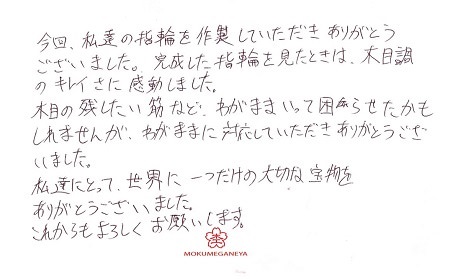 今回、私達の指輪を作製していただきありがとう
ございました。完成した指輪を見たときは、木目調
のキレイさに感動しました。
木目の残したい筋など、わがままいって困らせたかも
しれませんが、わがままに対応していただきありがとうござ
いました。
私達にとって、世界に一つだけの大切な宝物を
ありがとうございました。
これからもよろしくお願いします。
MOKUMEGANEYA